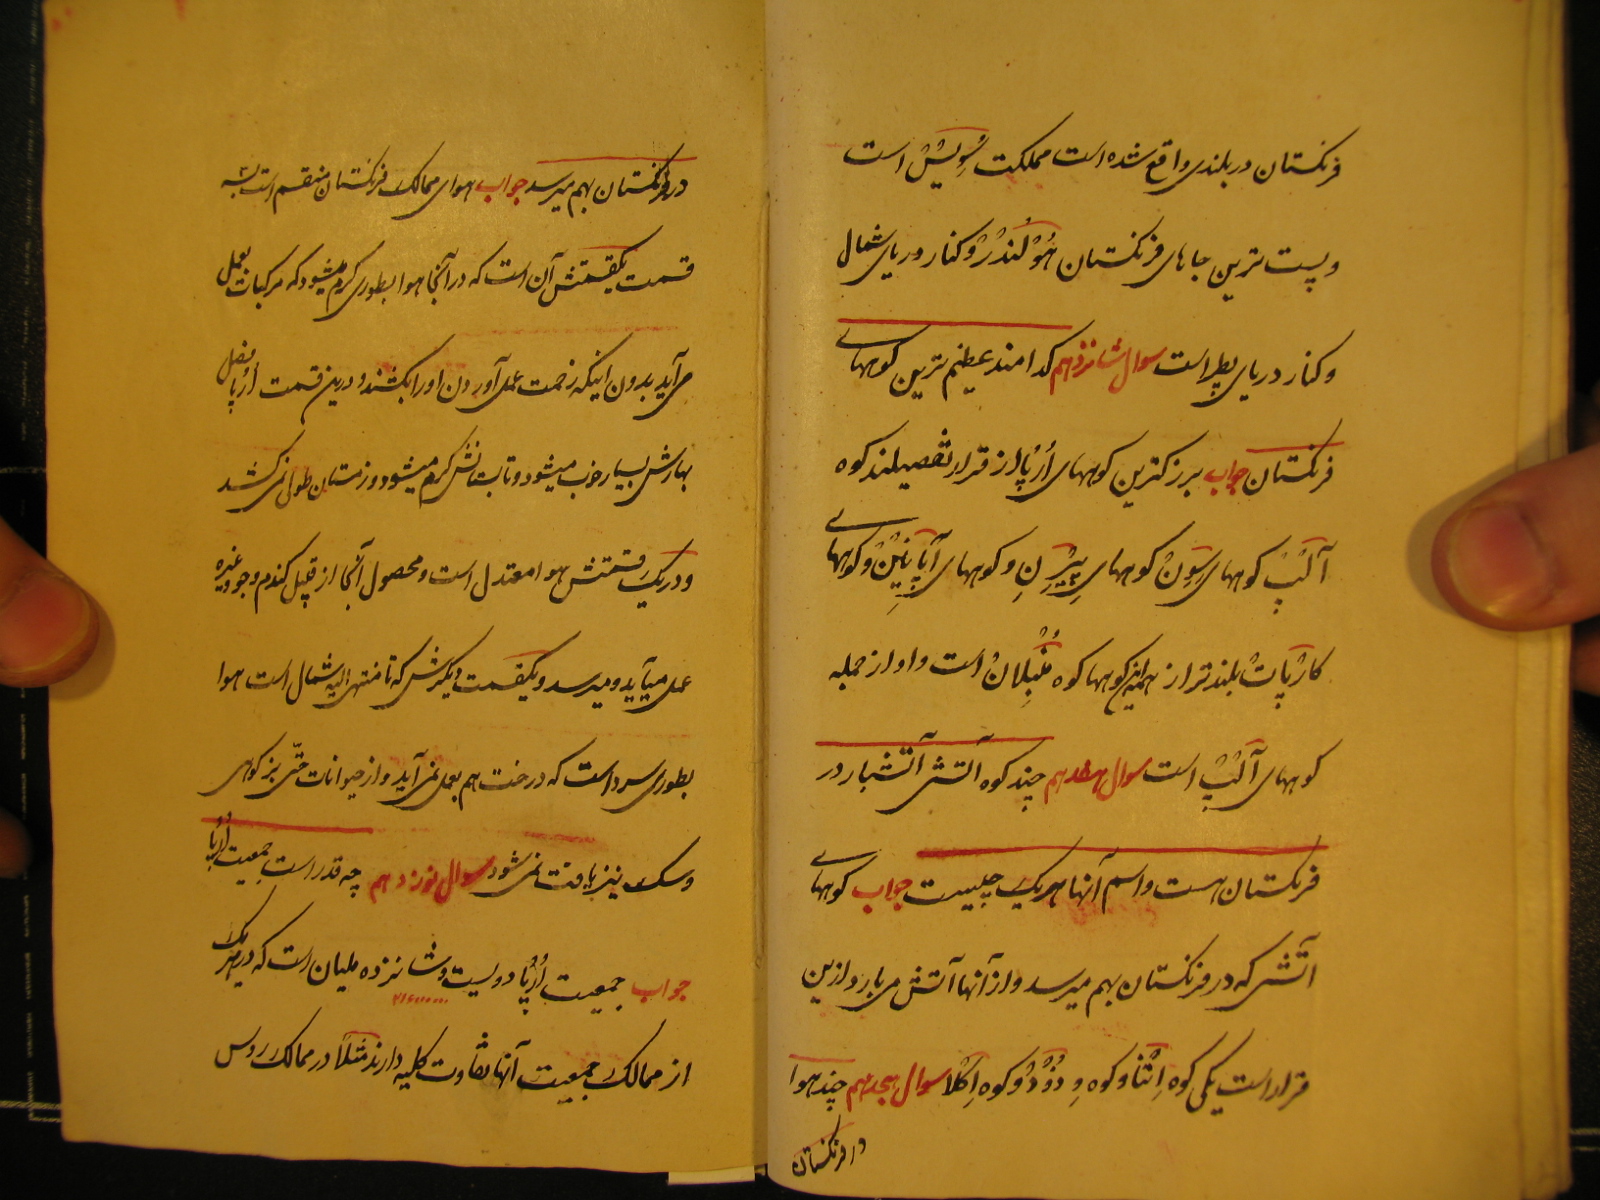 فرنگستان در بلندی واقع شده است مملکت سْوِیسْ است
و پست ترین جاهای فرنگستان هُوْلَندْرْ و کنار دریای شمال
و کنار دریای پطر است سوال شانزدهم کدامند عظیم ترین کوههای
فرنگستان جواب بزرکترین کوههای اُرُپا از قرار تفصیلند کوه
آلْپْ کوههای سِوِنْ کوههای پیْرِنِ و کوههای آپاپِنینْ و کوههای
کارْپاتْ بلندتر از همه این کوهها کوه مُنْبِلانْ است و او از جمله
کوههای آلْپْ است سوال هفدهم چند کوه آتش آتشبار در
فرنگستان هست و اسم آنها هر یک چیست جواب کوههای
آتش که در فرنگستان بهم میرسد و از آنها آتش می بارد ازین
قرار است یکی کوه اِتْنا و کوه وِزُوْوْ و کوه اِکْلا سوال هجدهم چند هوا
در فرنگستان
در فرنگستان بهم میرسد جواب هوای ممالک فرنگستان منقسم است بسه
قسمت یکقسمتش آن است که در آنجا هوا بطوری گرم میشود که مرکبات بعمل
می آید بدون اینکه زحمت عمل آوردن او را بکشند و درین قسمت اُرُپا فصل
بهارش بسیار خوب میشود و تابستانش گرم میشود و زمستان طول نمی کشد
و در یک قسمتش هوا معتدل است و محصول آنجا از قبیل کندم و جو و غیره
عمل میآید و میرسد و یکقسمت دیکرش که تا منتهی الیه شمال است هوا
بطوری سرد است که درخت هم بعمل نمی آید و از حیوانات حتّی بز کوهی
و سک نیز یافت نمی شود سوال نوزدهم چه قدر است جمعیت اُرُپا
جواب جمعیت اُرُپا دویست و شانزده ملیان است که در هر یک
۲۱۶۰۰۰۰۰۰
از ممالک جمعیت آنها تفاوت کلیه دارند مثلاً در ممالک روس